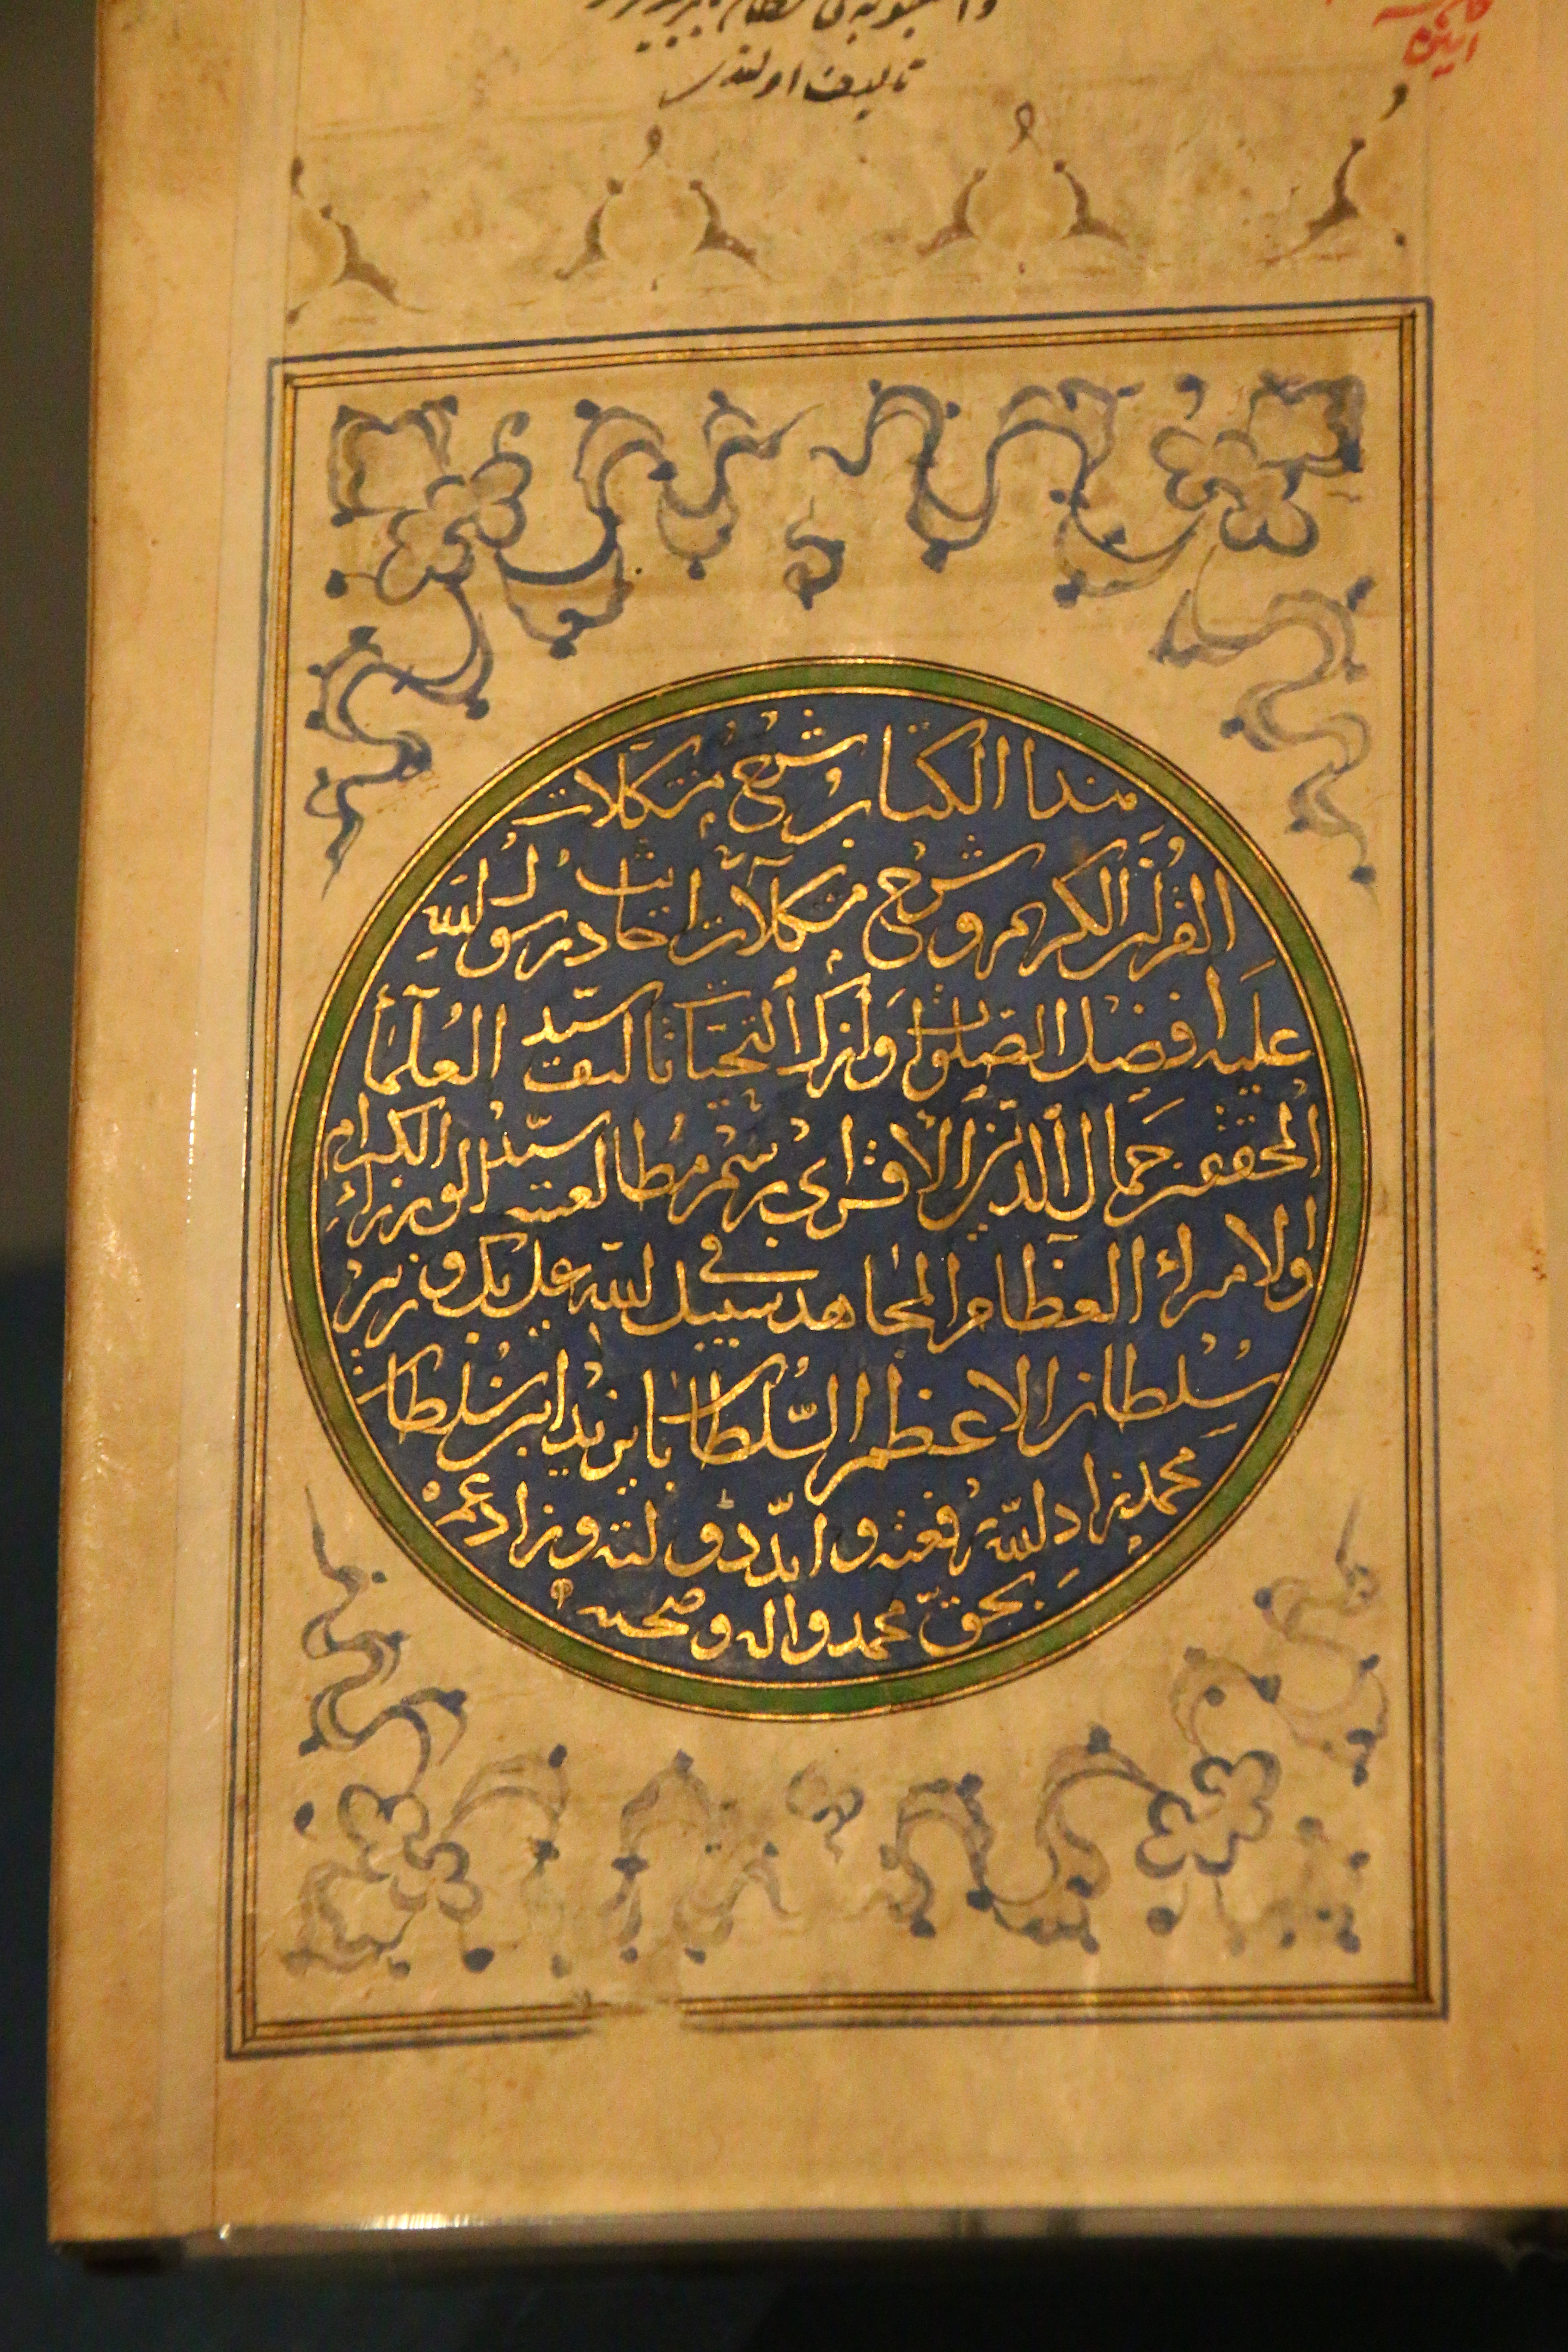 تأليف اولندى
هذا الكتاب شرح مشكلات
القرآن الكريم وشرح مشكلات احاديث رسول الله
عليه افضل الصلوات وازكى التحيات تأليف سيد العلماء
المحققين جمال الدين الاقسرائى برسم مطالعة سيد الوزراء الكرام
والامراء العظام المجاهد فى سبيل الله على بك وزير
سلطان الاعظم السلطان بايزيد ابن سلطان
محمد زاد الله رفعته وابد دولته وزاد عمره
بحق محمد واله وصحبه